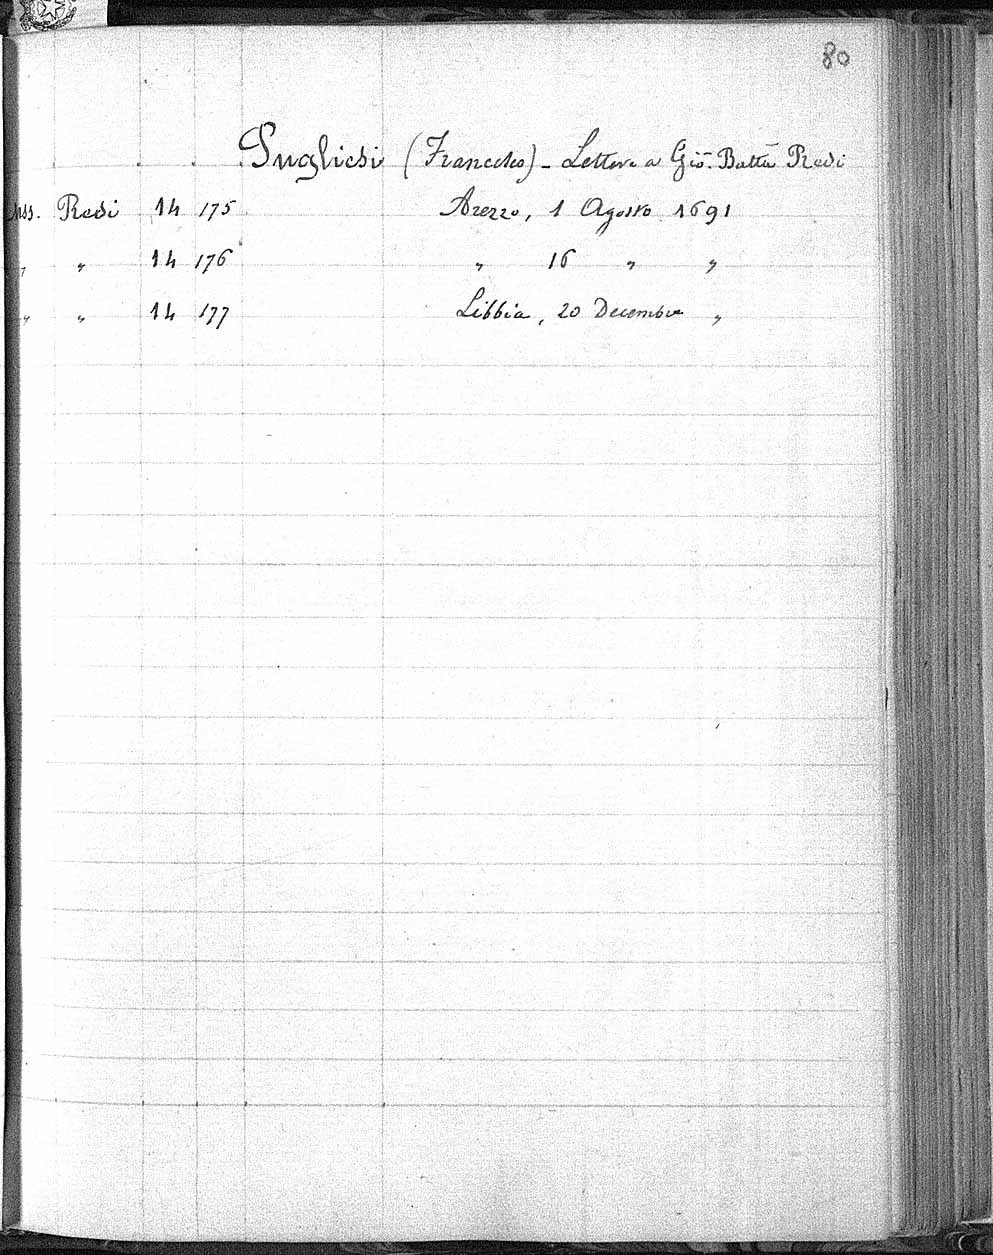 80
Pugliesi (Francesco) - Lettere a Gio. Batta Redi
Mss. Redi 14 175 Arezzo, 1 Agosto 1691
" " 14 176 " 16 " "
" " 14 177 Libbia, 20 Decembre "